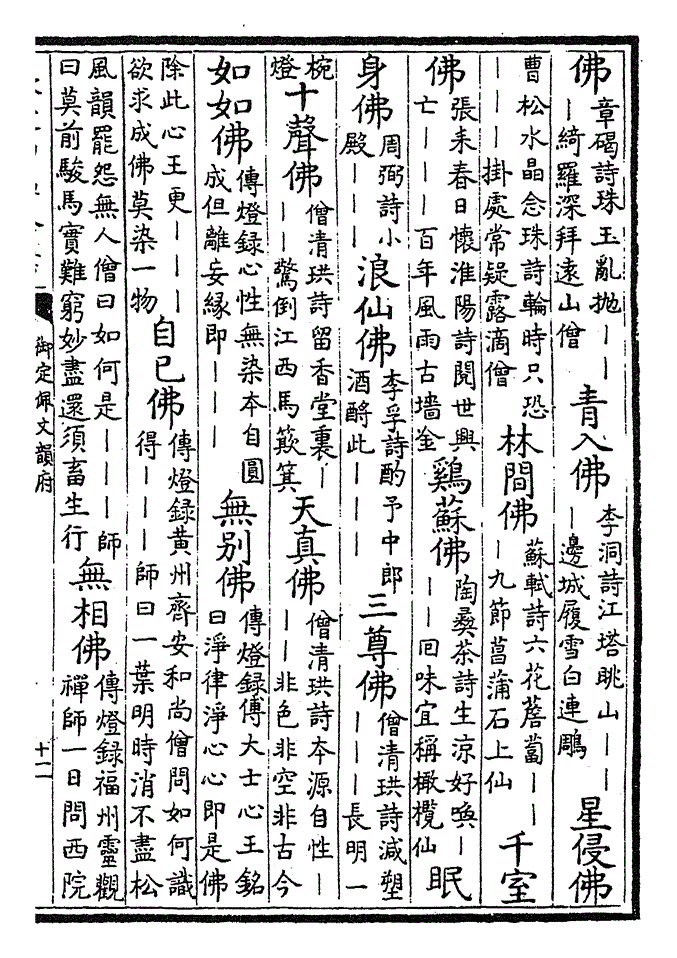 佛 章碣詩珠玉亂拋———綺羅深拜遠山僧 青入佛 李洞詩江塔眺山———邊城履雪白連鵰 星侵佛
曹松水晶念珠詩輪時只恐———掛處常疑露滴僧 林間佛 蘇軾詩六花薝蔔———九節菖蒲石上仙 千室
佛 張耒春日懷淮陽詩閱世興亡———百年風雨古墻金 鷄蘇佛 陶彝茶詩生涼好喚———回味宜稱橄欖仙 眠
身佛 周弼詩小殿——— 浪仙佛 李孚詩酌予中郎酒酹此——— 三尊佛 僧清珙詩減塑———長明一
椀燈 十聲佛 僧清珙詩留香堂裏———驚倒江西馬簸箕 天真佛 僧清珙詩本源自性———非色非空非古今
如如佛 傳燈錄心性無染本自圓成但離妄緣即——— 無别佛 傳燈錄傅大士心王銘曰淨律淨心心即是佛
除此心王更———欲求成佛莫染一物 自已佛 傳燈錄黃州齊安和尚僧問如何識得———師曰一葉明時消不盡松
風韻罷怨無人僧曰如何是———師曰莫前駿馬實難窮妙盡還須畜生行 無相佛 傳燈錄福州靈觀禪師一日問西院
御定佩文韻府
十二